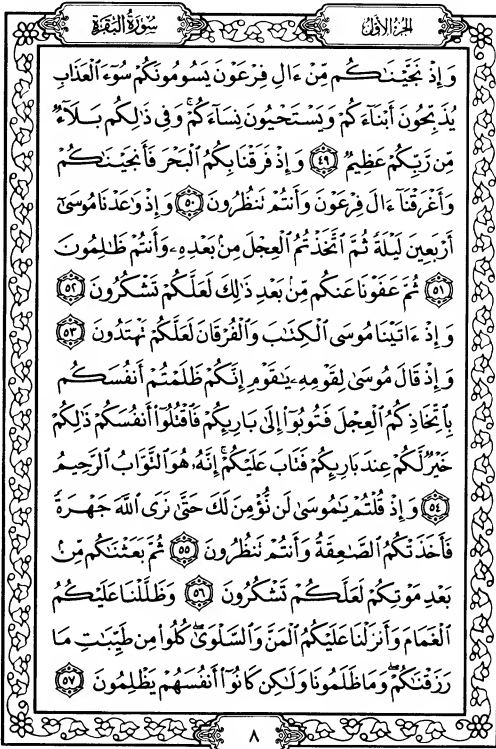 الجزء الأول
سورة البقرة
وَإِذْ نَجَّيْنَٰكُم مِّنْ ءَالِ فِرْعَوْنَ يَسُومُونَكُمْ سُوٓءَ الْعَذَابِ
يُذَبِّحُونَ أَبْنَآءَكُمْ وَيَسْتَحْيُونَ نِسَآءَكُمْ ۚ وَفِى ذَٰلِكُم بَلَآءٌ
مِّن رَّبِّكُمْ عَظِيمٌ ٤٩ وَإِذْ فَرَقْنَا بِكُمُ الْبَحْرَ فَأَنجَيْنَٰكُمْ
وَأَغْرَقْنَآ ءَالَ فِرْعَوْنَ وَأَنتُمْ تَنظُرُونَ ٥٠ وَإِذْ وَٰعَدْنَا مُوسَىٰٓ
أَرْبَعِينَ لَيْلَةً ثُمَّ اتَّخَذْتُمُ الْعِجْلَ مِنۢ بَعْدِهِۦ وَأَنتُمْ ظَٰلِمُونَ
٥١ ثُمَّ عَفَوْنَا عَنكُم مِّنۢ بَعْدِ ذَٰلِكَ لَعَلَّكُمْ تَشْكُرُونَ ٥٢
وَإِذْ ءَاتَيْنَا مُوسَى الْكِتَٰبَ وَالْفُرْقَانَ لَعَلَّكُمْ تَهْتَدُونَ ٥٣
وَإِذْ قَالَ مُوسَىٰ لِقَوْمِهِۦ يَٰقَوْمِ إِنَّكُمْ ظَلَمْتُمْ أَنفُسَكُم
بِاتِّخَاذِكُمُ الْعِجْلَ فَتُوبُوٓا۟ إِلَىٰ بَارِئِكُمْ فَاقْتُلُوٓا۟ أَنفُسَكُمْ ذَٰلِكُمْ
خَيْرٌ لَّكُمْ عِندَ بَارِئِكُمْ فَتَابَ عَلَيْكُمْ ۚ إِنَّهُۥ هُوَ التَّوَّابُ الرَّحِيمُ
٥٤ وَإِذْ قُلْتُمْ يَٰمُوسَىٰ لَن نُّؤْمِنَ لَكَ حَتَّىٰ نَرَى اللَّهَ جَهْرَةً
فَأَخَذَتْكُمُ الصَّٰعِقَةُ وَأَنتُمْ تَنظُرُونَ ٥٥ ثُمَّ بَعَثْنَٰكُم مِّنۢ
بَعْدِ مَوْتِكُمْ لَعَلَّكُمْ تَشْكُرُونَ ٥٦ وَظَلَّلْنَا عَلَيْكُمُ
الْغَمَامَ وَأَنزَلْنَا عَلَيْكُمُ الْمَنَّ وَالسَّلْوَىٰ ۖ كُلُوا۟ مِن طَيِّبَٰتِ مَا
رَزَقْنَٰكُمْ ۖ وَمَا ظَلَمُونَا وَلَٰكِن كَانُوٓا۟ أَنفُسَهُمْ يَظْلِمُونَ ٥٧
٨